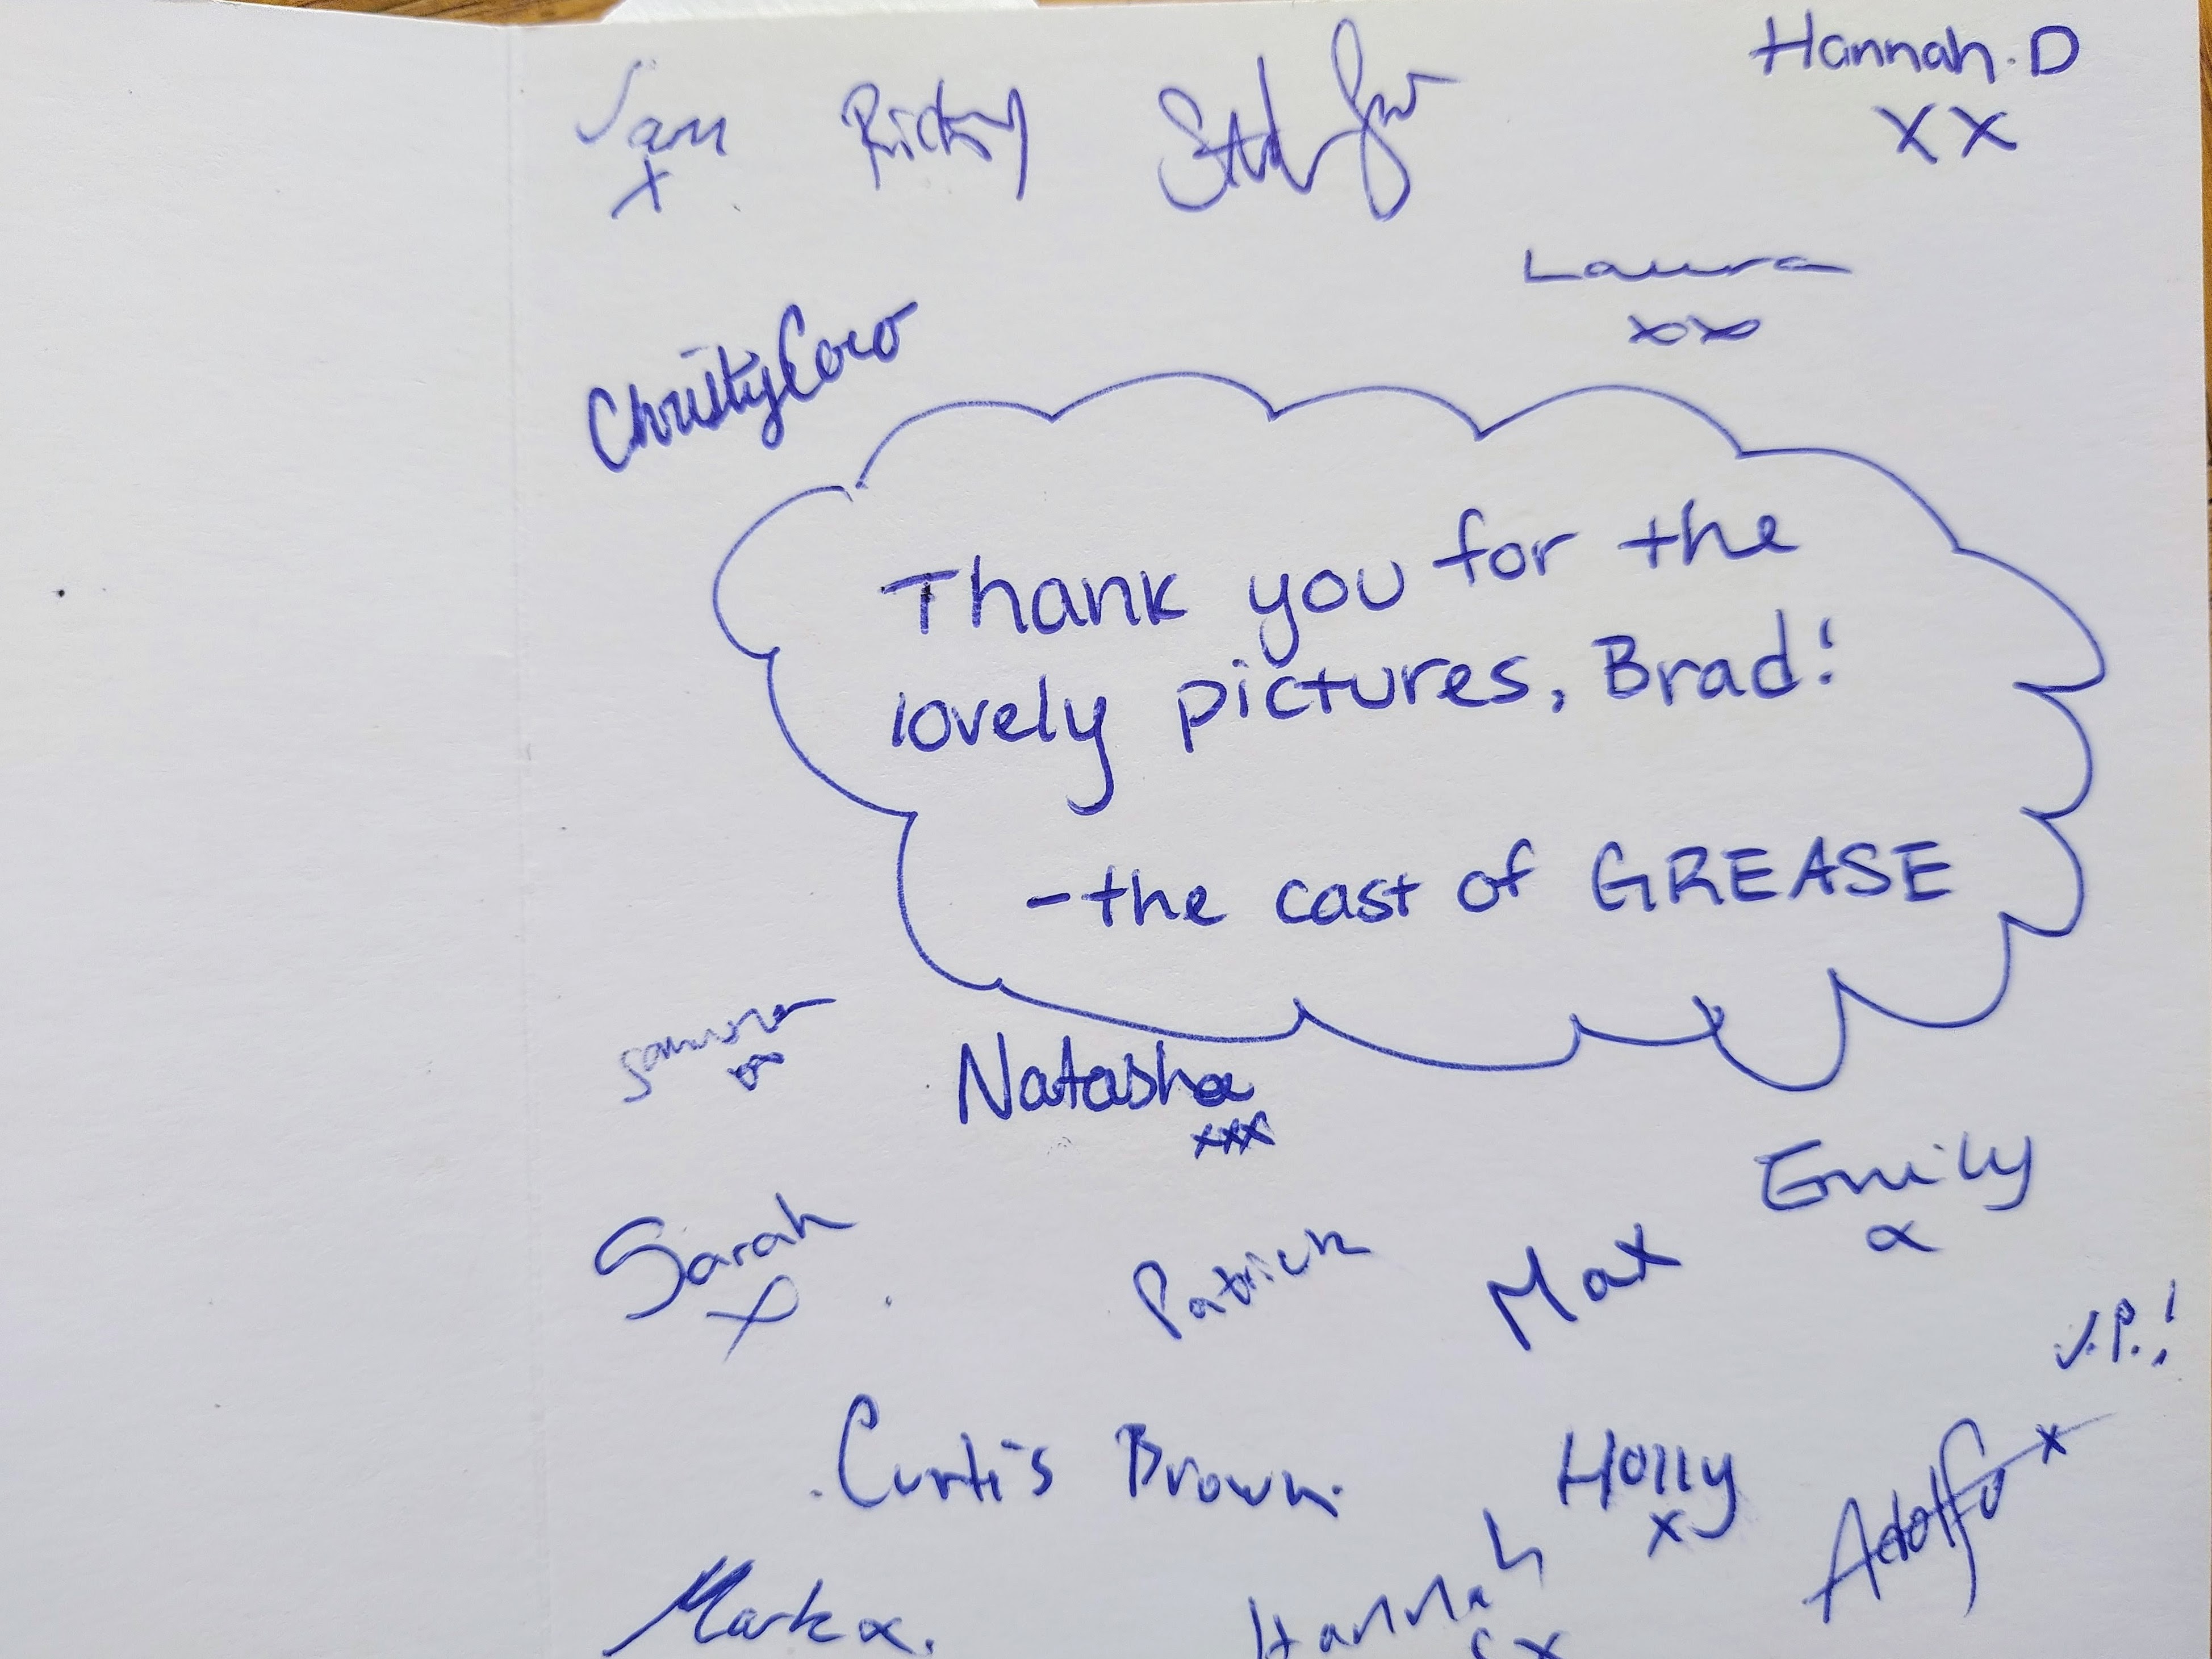 Hannah.D
xx
Ricky
x
Laura
xx
Christy Coco
Thank you for the
lovely pictures, Brad!
-the cast of GREASE
Natasha
xxx
Emily
x
Sarah
x
Patrick
Max
J.P.!
Curtis Brown.
Holly
x
Adolfo x
Mark x.
Hannah
x